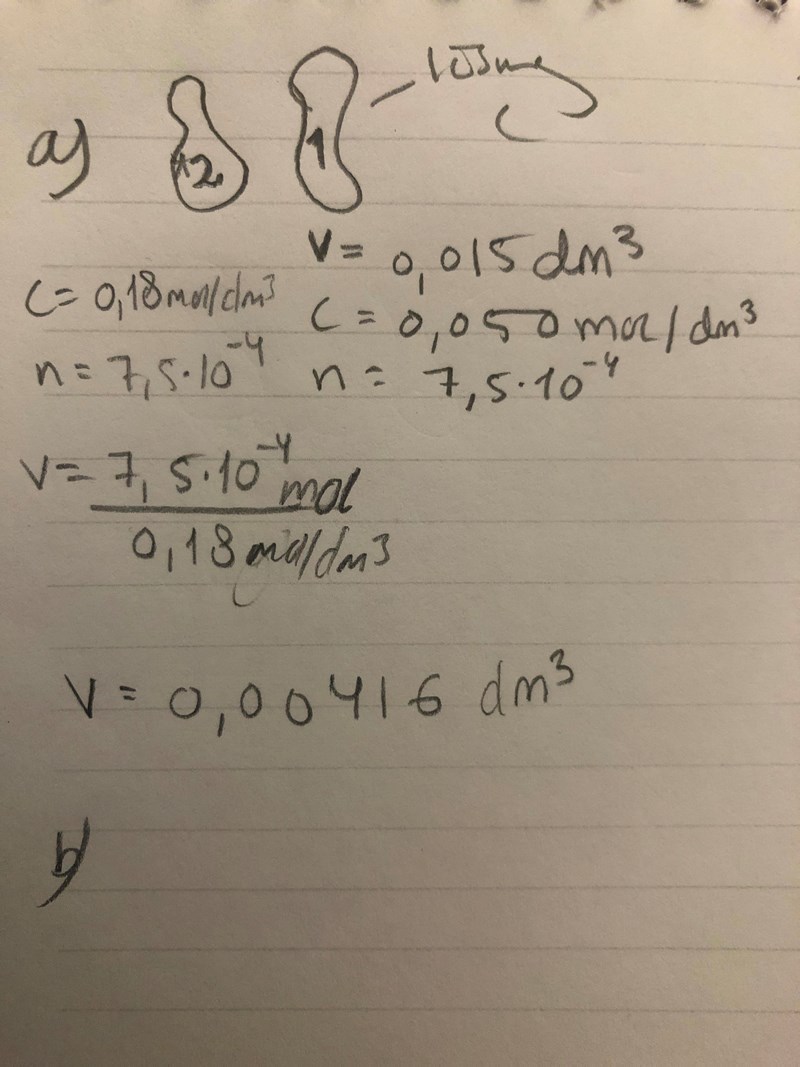 lösning
a)
2
1
V = 0,015 dm³
C = 0,18 mol/dm³
C = 0,050 mol/dm³
n = 7,5·10⁻⁴
n = 7,5·10⁻⁴
V = 7,5·10⁻⁴ mol
0,18 mol/dm³
V = 0,00416 dm³
b)